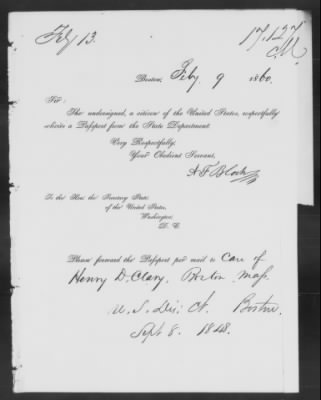 Feby 13.
17,127
C.M.
Boston, Feby. 9 1860.
Sir:
The undersigned, a citizen of the United States, respectfully
solicits a Passport from the State Department.
Very Respectfully,
Your Obedient Servant,
A F Bloch
To the Hon. the Secretary State
of the United States,
Washington,
D. C.
Please forward the Passport per mail to Care of
Henry D. Clary, Boston Mass.
U. S. Dis: Ct. Boston.
Sept 8. 1848.